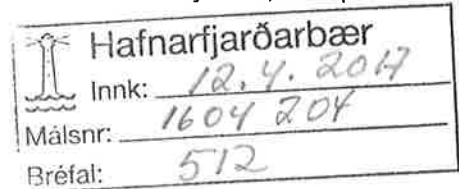 Hafnarfjarðarbær
Innk: 12.4.2017
Málsnr: 1604 204
Bréfal: 512